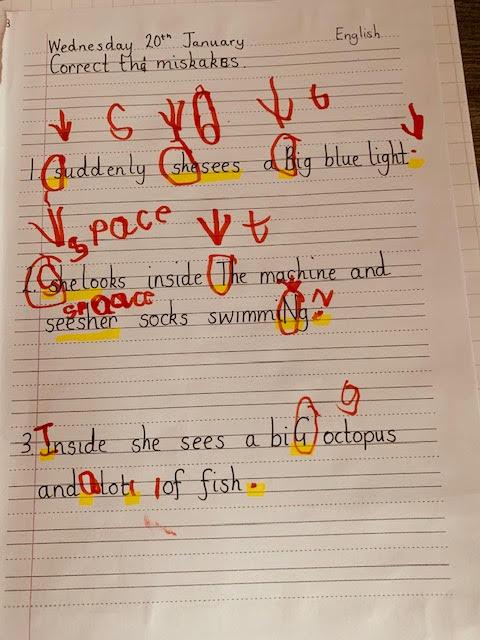 Wednesday 20th January English
Correct the miskakes.
S b
1. suddenly shesees a Big blue light.
space t
2. Shelooks inside The machine and
space
seesher socks swimmiNg. N
g
3 Inside she sees a biG octopus
and alot of fish.